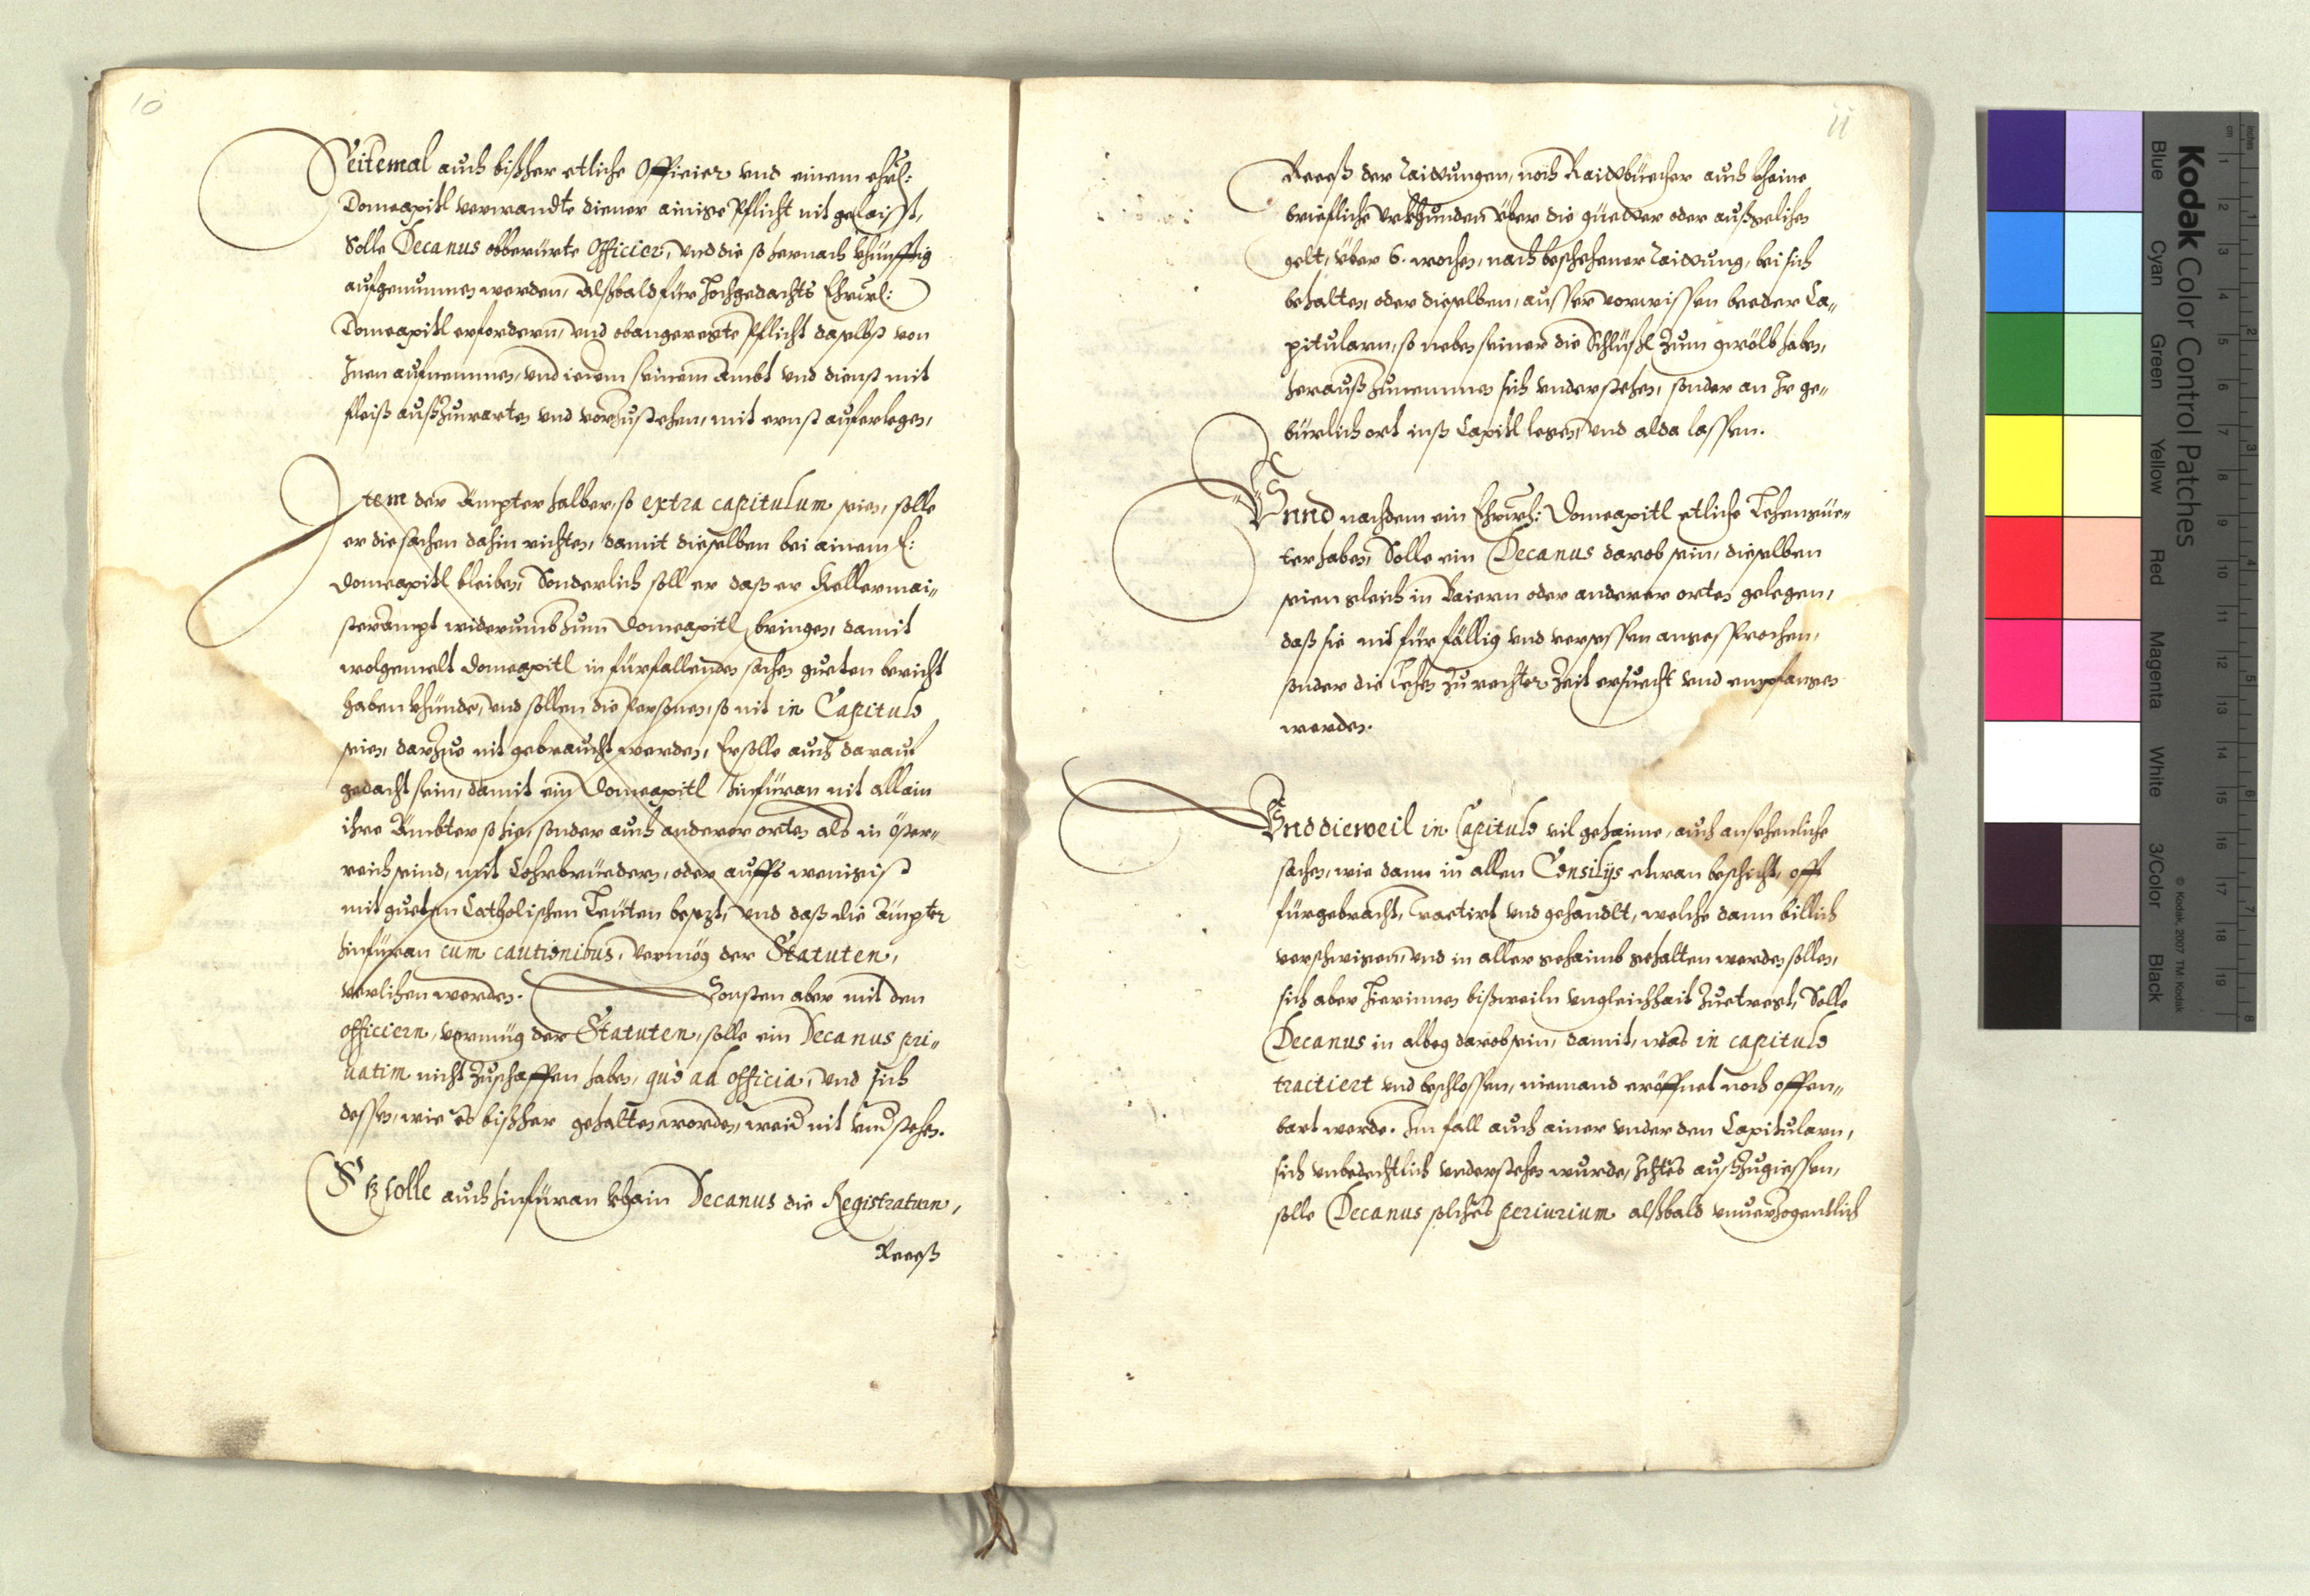 10
Seitemal auch bißher etliche Officier vnd einem ehrl:
Domcapitl verwandte diener ainige Pflicht nit gelaist,
Solle Decanus obberürte Officier, vnd die so hernach khünfftig
aufgenummen werden, Alßbald für hochgedachts Ehrwl:
Domcapitl erfordern, vnd obangeregte Pflicht daselbs von
Inen aufnemmen, vnd iedem seinem Ambt vnd dienst mit
fleiß außzuwarten vnd vorzustehen, mit ernst auferlegen,
Item der Ämpter halber, so extra capitulum seien, solle
er die sachen dahin richten, damit dieselben bei ainem E:
Domcapitl bleiben, Sonderlich soll er daß er Kellermai„
sterampt widerumb zum Domcapitl bringen, damit
wolgemelt Domcapitl in fürfallenden sachen gueten bericht
haben khünde, vnd sollen die Personen, so nit in Capitulo
seien, darzue nit gebraucht werden, Er solle auch darauf
gedacht sein, damit ein Domcapitl hinfüran nit allain
ihre Ämbter so hie, sonder auch anderer orten als in Öster„
reich seind, mit Lohrbrüedern, oder auffs wenigist
mit gueten Catholischen Leüten besezt, vnd daß die Ämpter
hinfüran cum cautionibus, vermög der Statuten,
verlihen werden. Sonsten aber mit den
officiern, vermüg der Statuten, solle ein Decanus pri„
uatim nicht zuschaffen haben, quo ad officia, vnd sich
dessen, wie es bißher gehalten worden, weid nit vnd stehen.
Es solle auch hinfüran khain Decanus die Registraturn,
Receß
11
Receß der Raittungen, noch Raitbüecher auch kheine
briefliche Vrkhunden über die güetter oder außgelihen
gelt, über 6. wochen, nach beschehener Raittung, bei sich
behalten, oder dieselben, ausser vorwissen beeder Ca„
pitularn, so neben seiner die Schlüßl zum gwölb haben,
herauß zunemmen sich vnderstehen, sonder an Ir ge„
bürlich ort inß Capitl legen, vnd alda lassen.
Vnnd nachdem ein Ehrwl: Domcapitl etliche Lehengüe„
ter haben, Solle ein Decanus darob sein, dieselben
seien gleich in Baiern oder anderer orten gelegen,
daß sie nit für fällig vnd vergessen angesprochen,
sonder die Lehen zu rechter Zeit ersuecht vnd empfangen
werden.
Vnd dieweil in Capitulo vil gehaime, auch ansehenliche
sachen, wie dann in allen Consilijs etwan beschicht, offt
fürgebracht, Tractirt vnd gehandlt, welche dann billich
verschwigen, vnd in aller gehaimb gehalten werden sollen,
sich aber hierinnen bißweiln vngleichhait zuetregt, Solle
Decanus in albeg darob sein, damit, was in capitulo
tractiert vnd beschlossen, niemand eröffnet noch offen„
bart werde. Im fall auch ainer vnder den Capitularn,
sich vnbedechtlich vnderstehen wurde, Ichtes außzugiessen,
solle Decanus solches periurium alßbald vnuerzogentlich
Kodak Color Control Patches
© Kodak, 2007 TM: Kodak
Blue
Cyan
Green
Yellow
Red
Magenta
White
3/Color
Black
inches
cm
1
2
3
4
5
6
7
8
9
10
11
12
13
14
15
16
17
18
19
1
2
3
4
5
6
7
8